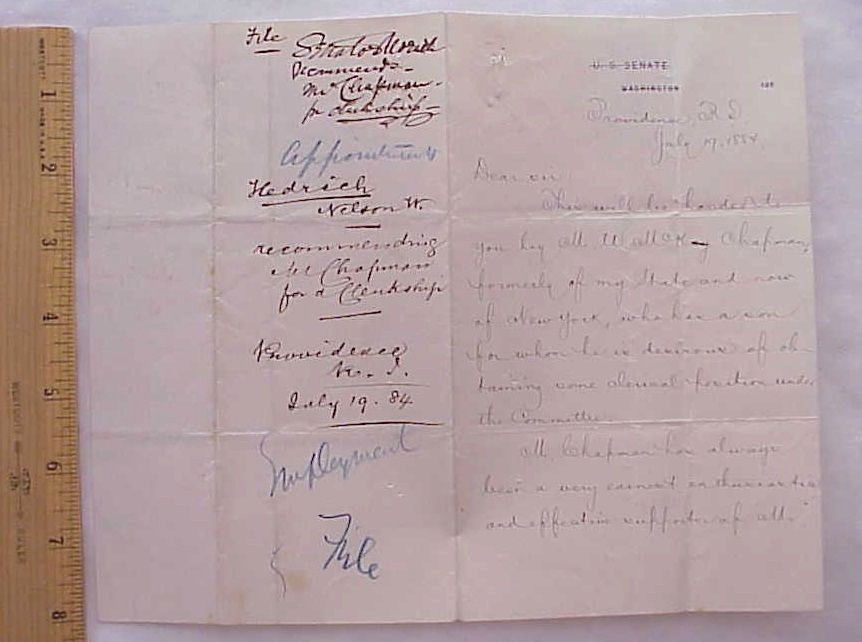 File
Senator
Recommends
Mr Chapman
for clerkship
Appointments
Hedrich
Nelson W.
recommending
Mr Chapman
for a Clerkship
Providence
R. I.
July 19. 84
Employment
File
U. S. SENATE
WASHINGTON
188
Providence, R.I.
July 17, 1884.
Dear sir:
This will be handed to
you by Mr. W. Chapman,
formerly of my State and now
of New York, who has a son
for whom he is desirous of ob-
taining some clerical position under
the Committee.
Mr. Chapman has always
been a very earnest enthusiastic
and effective supporter of
1
2
3
4
5
6
7
8